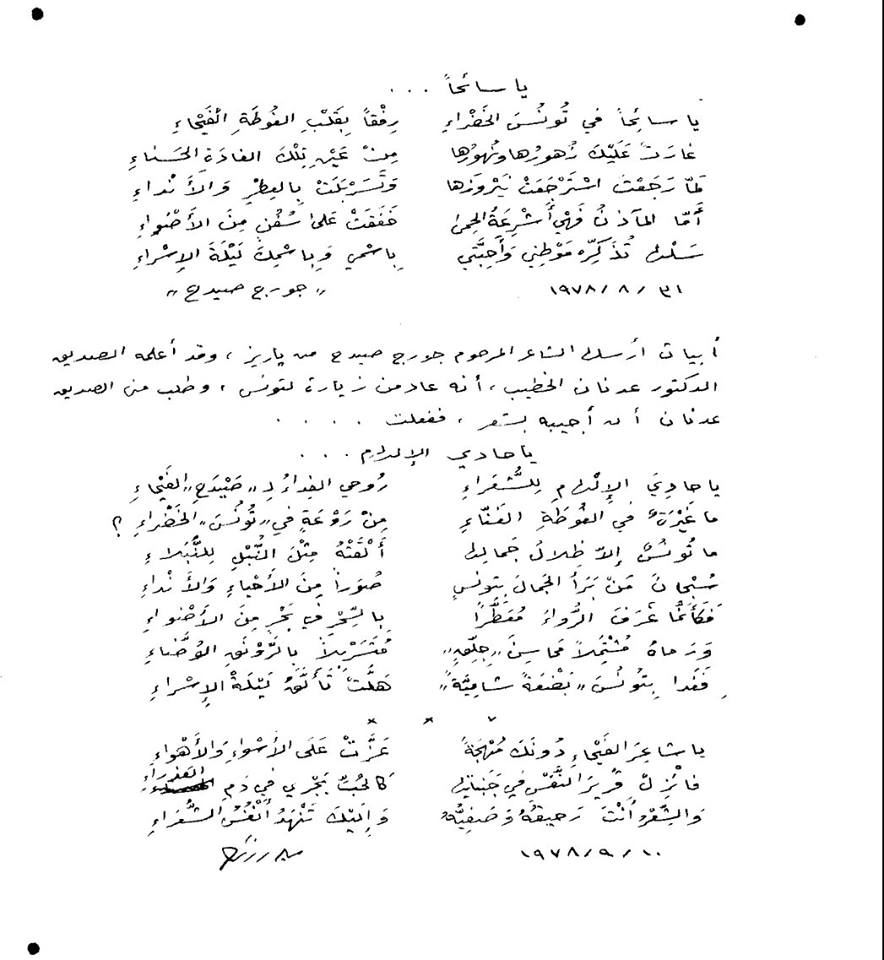 يا سائحاً . . .
يا سائِحاً في تُونُسَ الخَضْراءِ رِفْقاً بِقَلْبِ الغُوطَةِ الفَيْحاءِ
غارَتْ عَلَيْكَ زُهورُها ونُهورُها مِنْ عَيْنِ تِلْكَ الغادَةِ الحَسناءِ
لمّا رَجَعْتَ اسْتَرْجَعَتْ نَيْروزَها وَتَسَرْبَلَتْ بِالعِطْرِ وَالأَنْداءِ
أَمّا المآذنُ فَهْيَ أَشْرِعَةُ الحِمى خَفَقَتْ عَلى سُفُنٍ مِنَ الأَضْواءِ
تُذَكِّرْ مَوْطِني وَأَحِبَّتي بِاسْمي وَبِاسْمِكَ لَيْلَةَ الإِسْراءِ
٣١ / ٨ / ١٩٧٨ „ جورج صيدح „
أبيات أرسلها الشاعر المرحوم جورج صيدح من باريز ، وقد أعلمه الصديق
الدكتور عدنان الخطيب ، أنه عاد من زيارة لتونس ، وطلب مني الصديق
عدنان أن أجيبه بشعر ، ففعلت . . . .
يا حادي الإلهام . . .
يا حادِيَ الإِلْهامِ لِلشُّعَراءِ روحي الفِداءُ لِـ „ صَيْدَحِ „ الفَيْحاءِ
ما غَيْرَةٌ في الغُوطَةِ الغَنّاءِ مِنْ رَوْعَةٍ في „ تُونُسَ „ الخَضْراءِ ؟
ما تُونُسٌ إِلاّ ظِلالُ جَمالِها أَلْقَتْهُ مِثْلَ النُّبْلِ لِلنُّبَلاءِ
سُبْحانَ مَنْ بَرَأَ الجَمالَ بِتونسٍ صُوَراً مِنَ الأَحْياءِ وَالأَنْداءِ
فَكَأَنَّما غَرَفَ الرُّواءَ مُعَطَّرًا بِالسِّحْرِ في بَحْرٍ مِنَ الأَضْواءِ
وَرَماهُ مُشْتَمِلاً مَحاسِنَ „ جِلِّقٍ „ مُتَسَرْبِلاً بِالرَّوْنَقِ الوُضّاءِ
فَغَدا بِتُونُسَ „ بَضْعَةً شامِيَّةً „ هَلَّتْ تَأَلُّقَ لَيْلَةِ الإِسْراءِ
* * *
يا شاعِرَ الفَيْحاءِ دُونَكَ مُهْجَةً عَزَّتْ عَلَى الأَسْواءِ وَالأَهْواءِ
فانْزِلْ قَريرَ النَّفْسِ في جَنَباتِها كَالحُبِّ يَجْري في دَمِ العذراءِ
وَالشِّعْرُ أَنْتَ رَحيقُهُ وَصَفِيُّهُ وَإِلَيْكَ تَنْهَدُ أَنْفُسُ الشُّعَراءِ
١٠ / ٩ / ١٩٧٨